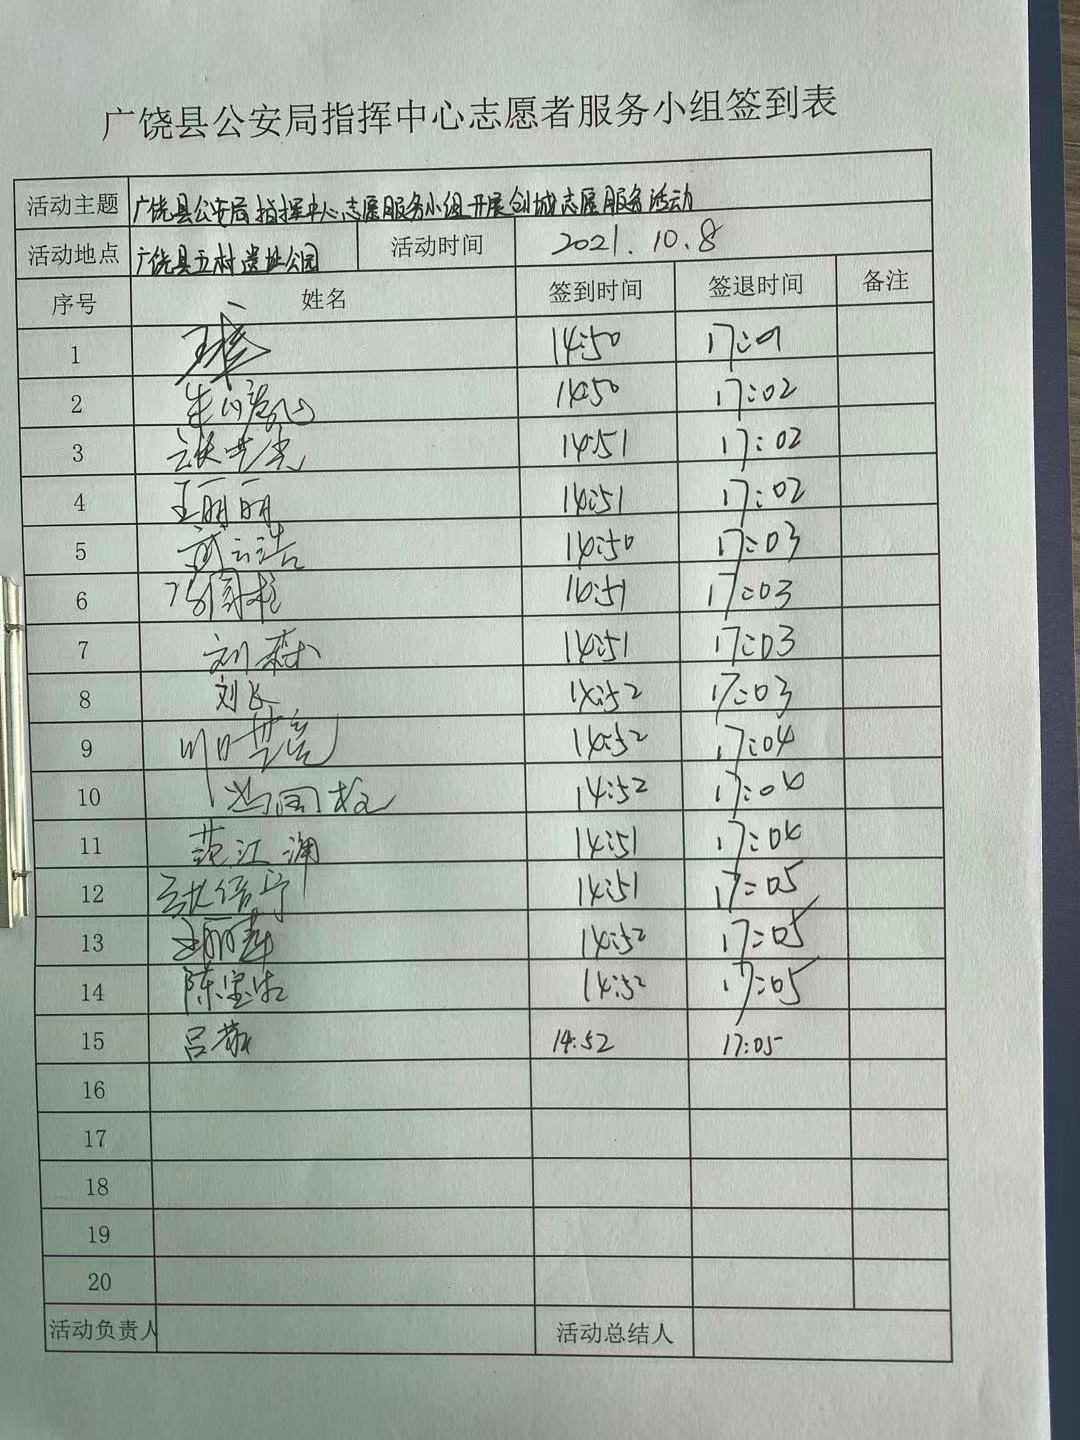 广饶县公安局指挥中心志愿者服务小组签到表
活动主题 广饶县公安局指挥中心志愿服务小组开展创城志愿服务活动
活动地点 广饶县五村遗址公园 活动时间 2021.10.8
序号 姓名 签到时间 签退时间 备注
1 14:50 17:01
2 14:50 17:02
3 14:51 17:02
4 王丽丽 14:51 17:02
5 14:50 17:03
6 14:51 17:03
7 刘森 14:51 17:03
8 刘飞 14:52 17:03
9 14:52 17:04
10 冯国柱 14:52 17:04
11 范江润 14:51 17:04
12 14:51 17:05
13 14:52 17:05
14 陈宝 14:52 17:05
15 吕敬 14:52 17:05
16
17
18
19
20
活动负责人 活动总结人